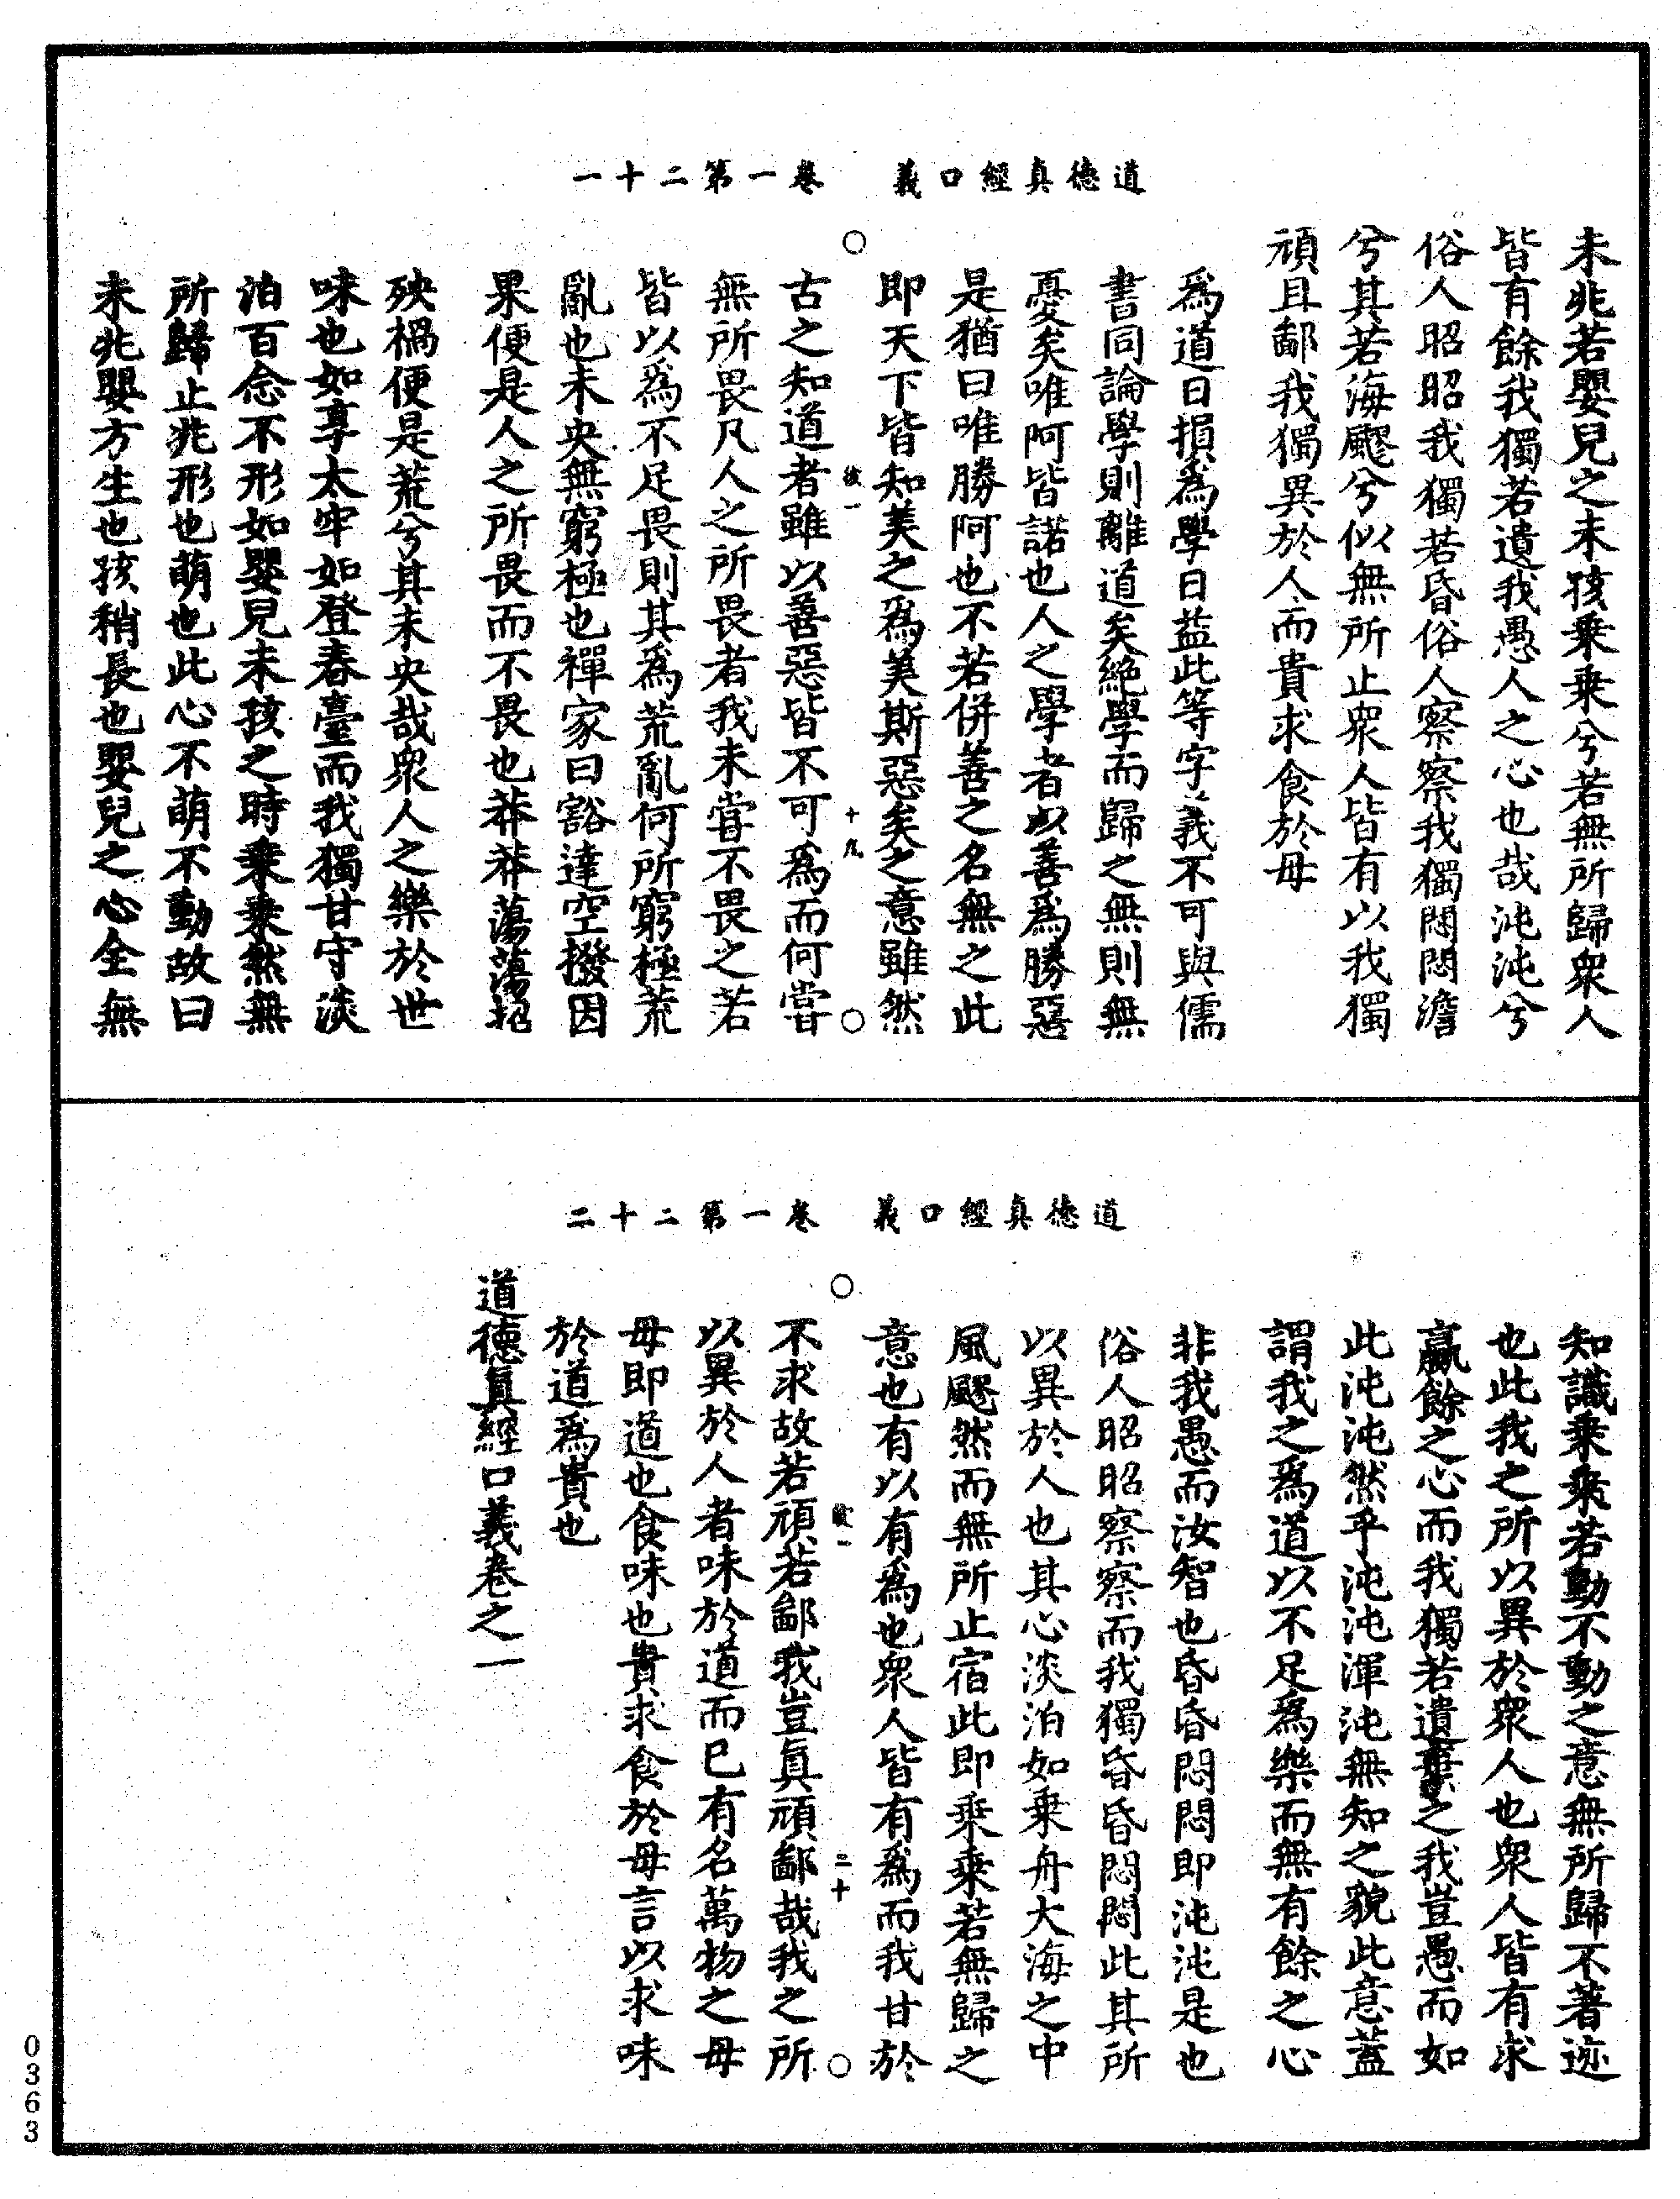 道德真經口義　卷一第二十一
未兆若嬰兒之未孩乗乗兮若無所歸衆人
皆有餘我獨若遺我愚人之心也哉沌沌兮
俗人昭昭我獨若昏俗人察察我獨悶悶澹
兮其若海飂兮似無所止衆人皆有以我獨
頑且鄙我獨異於人而貴求食於母
爲道日損爲學日益此等字義不可與儒
書同論學則離道矣絶學而歸之無則無
憂矣唯阿皆諾也人之學者以善爲勝惡
是猶曰唯勝阿也不若併善之名無之此
即天下皆知美之爲美斯惡矣之意雖然
彼一　十九
古之知道者雖以善惡皆不可爲而何嘗
無所畏凡人之所畏者我未嘗不畏之若
皆以爲不足畏則其爲荒亂何所窮極荒
亂也未央無窮極也禪家曰豁達空撥因
果便是人之所畏而不畏也莽莽蕩蕩招
殃禍便是荒兮其未央哉衆人之樂於世
味也如享太牢如登春臺而我獨甘守淡
泊百念不形如嬰兒未孩之時乗乗然無
所歸止兆形也萌也此心不萌不動故曰
未兆嬰方生也孩稍長也嬰兒之心全無
道德真經口義　卷一第二十二
知識乗乗若動不動之意無所歸不著迹
也此我之所以異於衆人也衆人皆有求
贏餘之心而我獨若遺棄之我豈愚而如
此沌沌然乎沌沌渾沌無知之貌此意蓋
謂我之爲道以不足爲樂而無有餘之心
非我愚而汝智也昏昏悶悶即沌沌是也
俗人昭昭察察而我獨昏昏悶悶此其所
以異於人也其心淡泊如乗舟大海之中
風飂然而無所止宿此即乗乗若無歸之
意也有以有爲也衆人皆有爲而我甘於
彼一　二十
不求故若頑若鄙我豈真頑鄙哉我之所
以異於人者味於道而已有名萬物之母
母即道也食味也貴求食於母言以求味
於道爲貴也
道德真經口義卷之一
0363